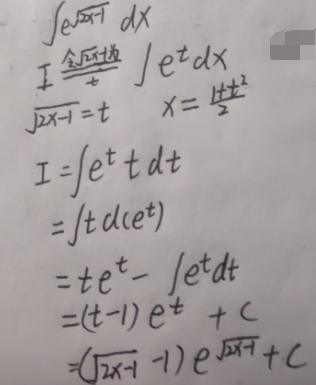 ∫e^√(2x-1) dx
I =(令√(2x-1)为t)= ∫e^t dx
√(2x-1) = t    x = (1+t²)/2
I = ∫e^t t dt
= ∫t d(e^t)
= te^t - ∫e^t dt
= (t-1)e^t + C
= (√(2x-1) -1) e^√(2x-1) + C